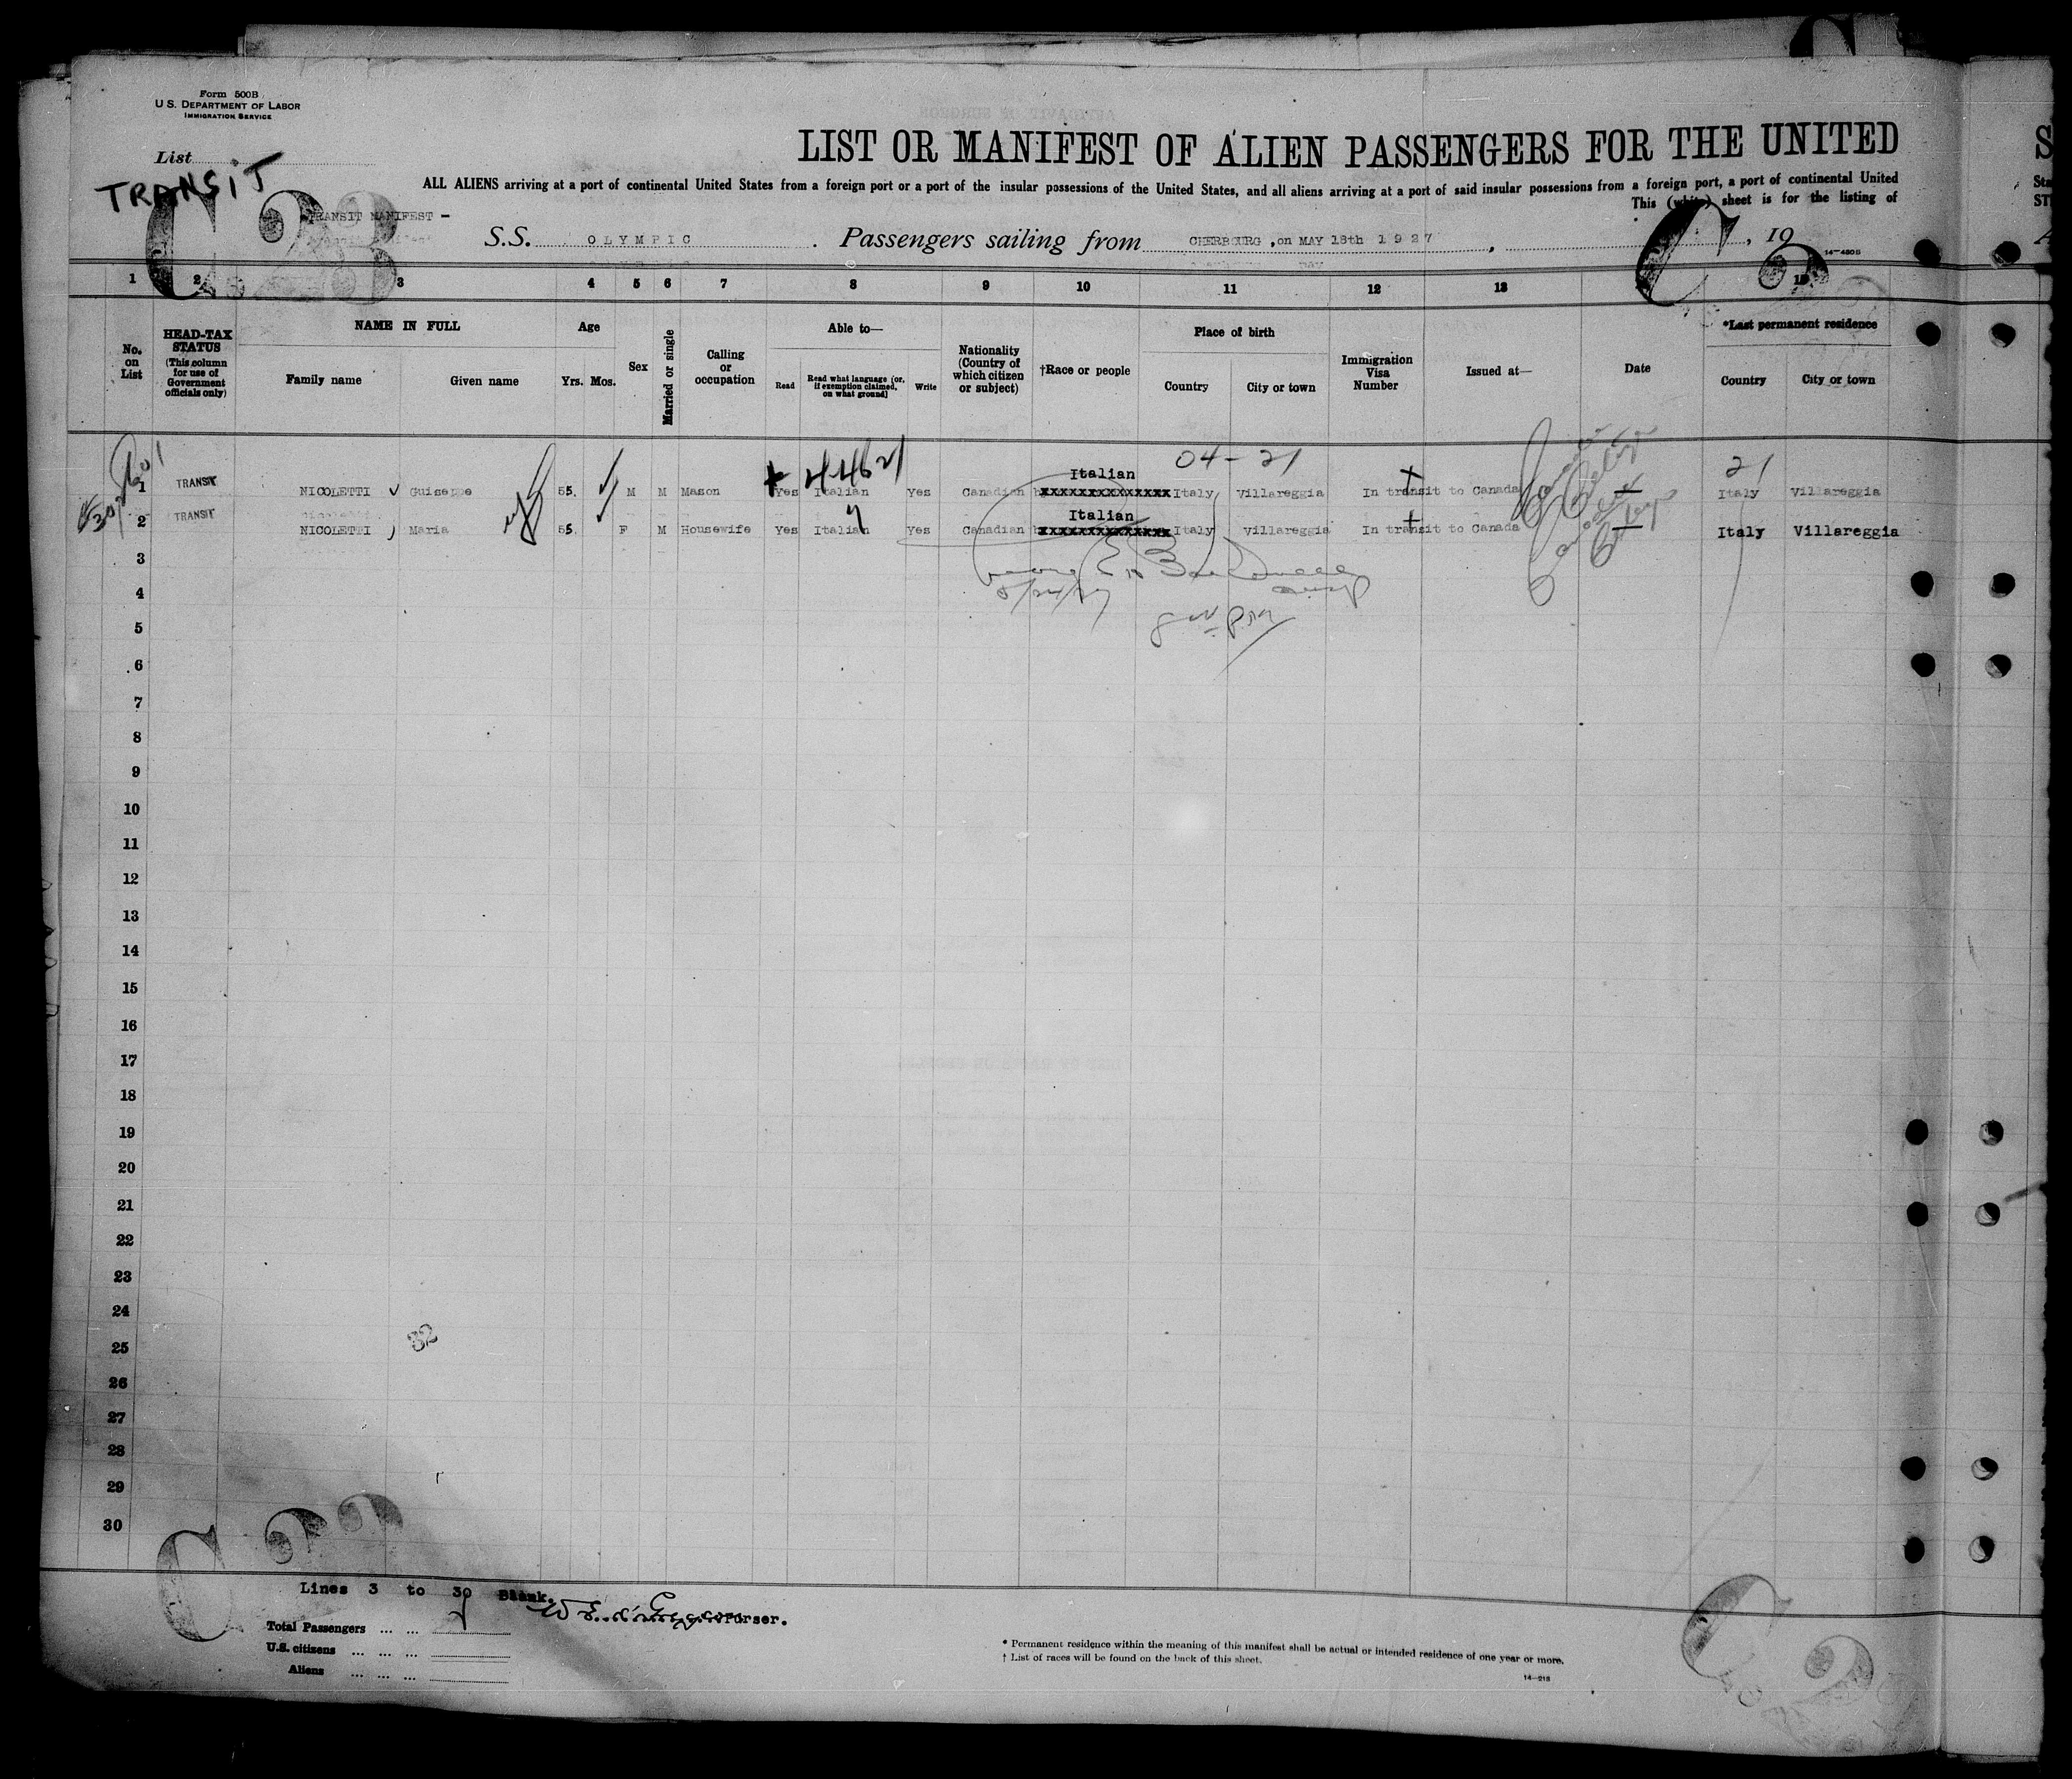 Form 500B
U.S. DEPARTMENT OF LABOR
IMMIGRATION SERVICE
List
TRANSIT
LIST OR MANIFEST OF ALIEN PASSENGERS FOR THE UNITED
ALL ALIENS arriving at a port of continental United States from a foreign port or a port of the insular possessions of the United States, and all aliens arriving at a port of said insular possessions from a foreign port, a port of continental United
This (white) sheet is for the listing of
TRANSIT MANIFEST -
S.S. OLYMPIC . Passengers sailing from CHERBOURG, on MAY 18th 1927, , 19
14—480B
1 2 3 4 5 6 7 8 9 10 11 12 13 15
No. on List
HEAD-TAX STATUS (This column for use of Government officials only)
NAME IN FULL
Family name Given name
Age
Yrs. Mos.
Sex
Married or single
Calling or occupation
Able to—
Read Read what language [or, if exemption claimed, on what ground] Write
Nationality (Country of which citizen or subject)
†Race or people
Place of birth
Country City or town
Immigration Visa Number
Issued at—
Date
*Last permanent residence
Country City or town
+ 44621 04-21 21
Italian
1 TRANSIT NICOLETTI Guiseppe 55. M M Mason Yes Italian Yes Canadian xxxxxxxxxxxxxx Italy Villareggia In transit to Canada Italy Villareggia
Italian
2 TRANSIT NICOLETTI Maria 55. F M Housewife Yes Italian Yes Canadian xxxxxxxxxxxxxx Italy Villareggia In transit to Canada Italy Villareggia
3
4
5/24/27
5
6
7
8
9
10
11
12
13
14
15
16
17
18
19
20
21
22
23
24
32
25
26
27
28
29
30
Lines 3 to 30 Blank.
Purser.
Total Passengers ... ...
U.S. citizens ... ... ...
Aliens ... ... ...
* Permanent residence within the meaning of this manifest shall be actual or intended residence of one year or more.
† List of races will be found on the back of this sheet.
14—218